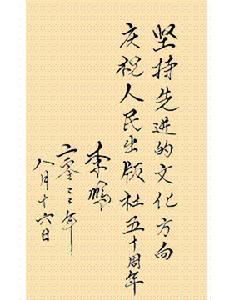 坚持先进的文化方向
庆祝人民出版社五十周年
李鹏
二〇〇〇年
八月十六日